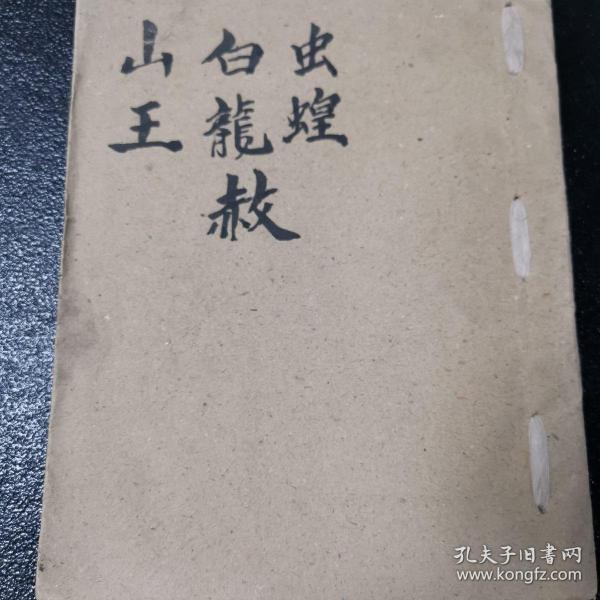 虫蝗
白龍赦
山王
孔夫子旧書网
www.kongfz.com